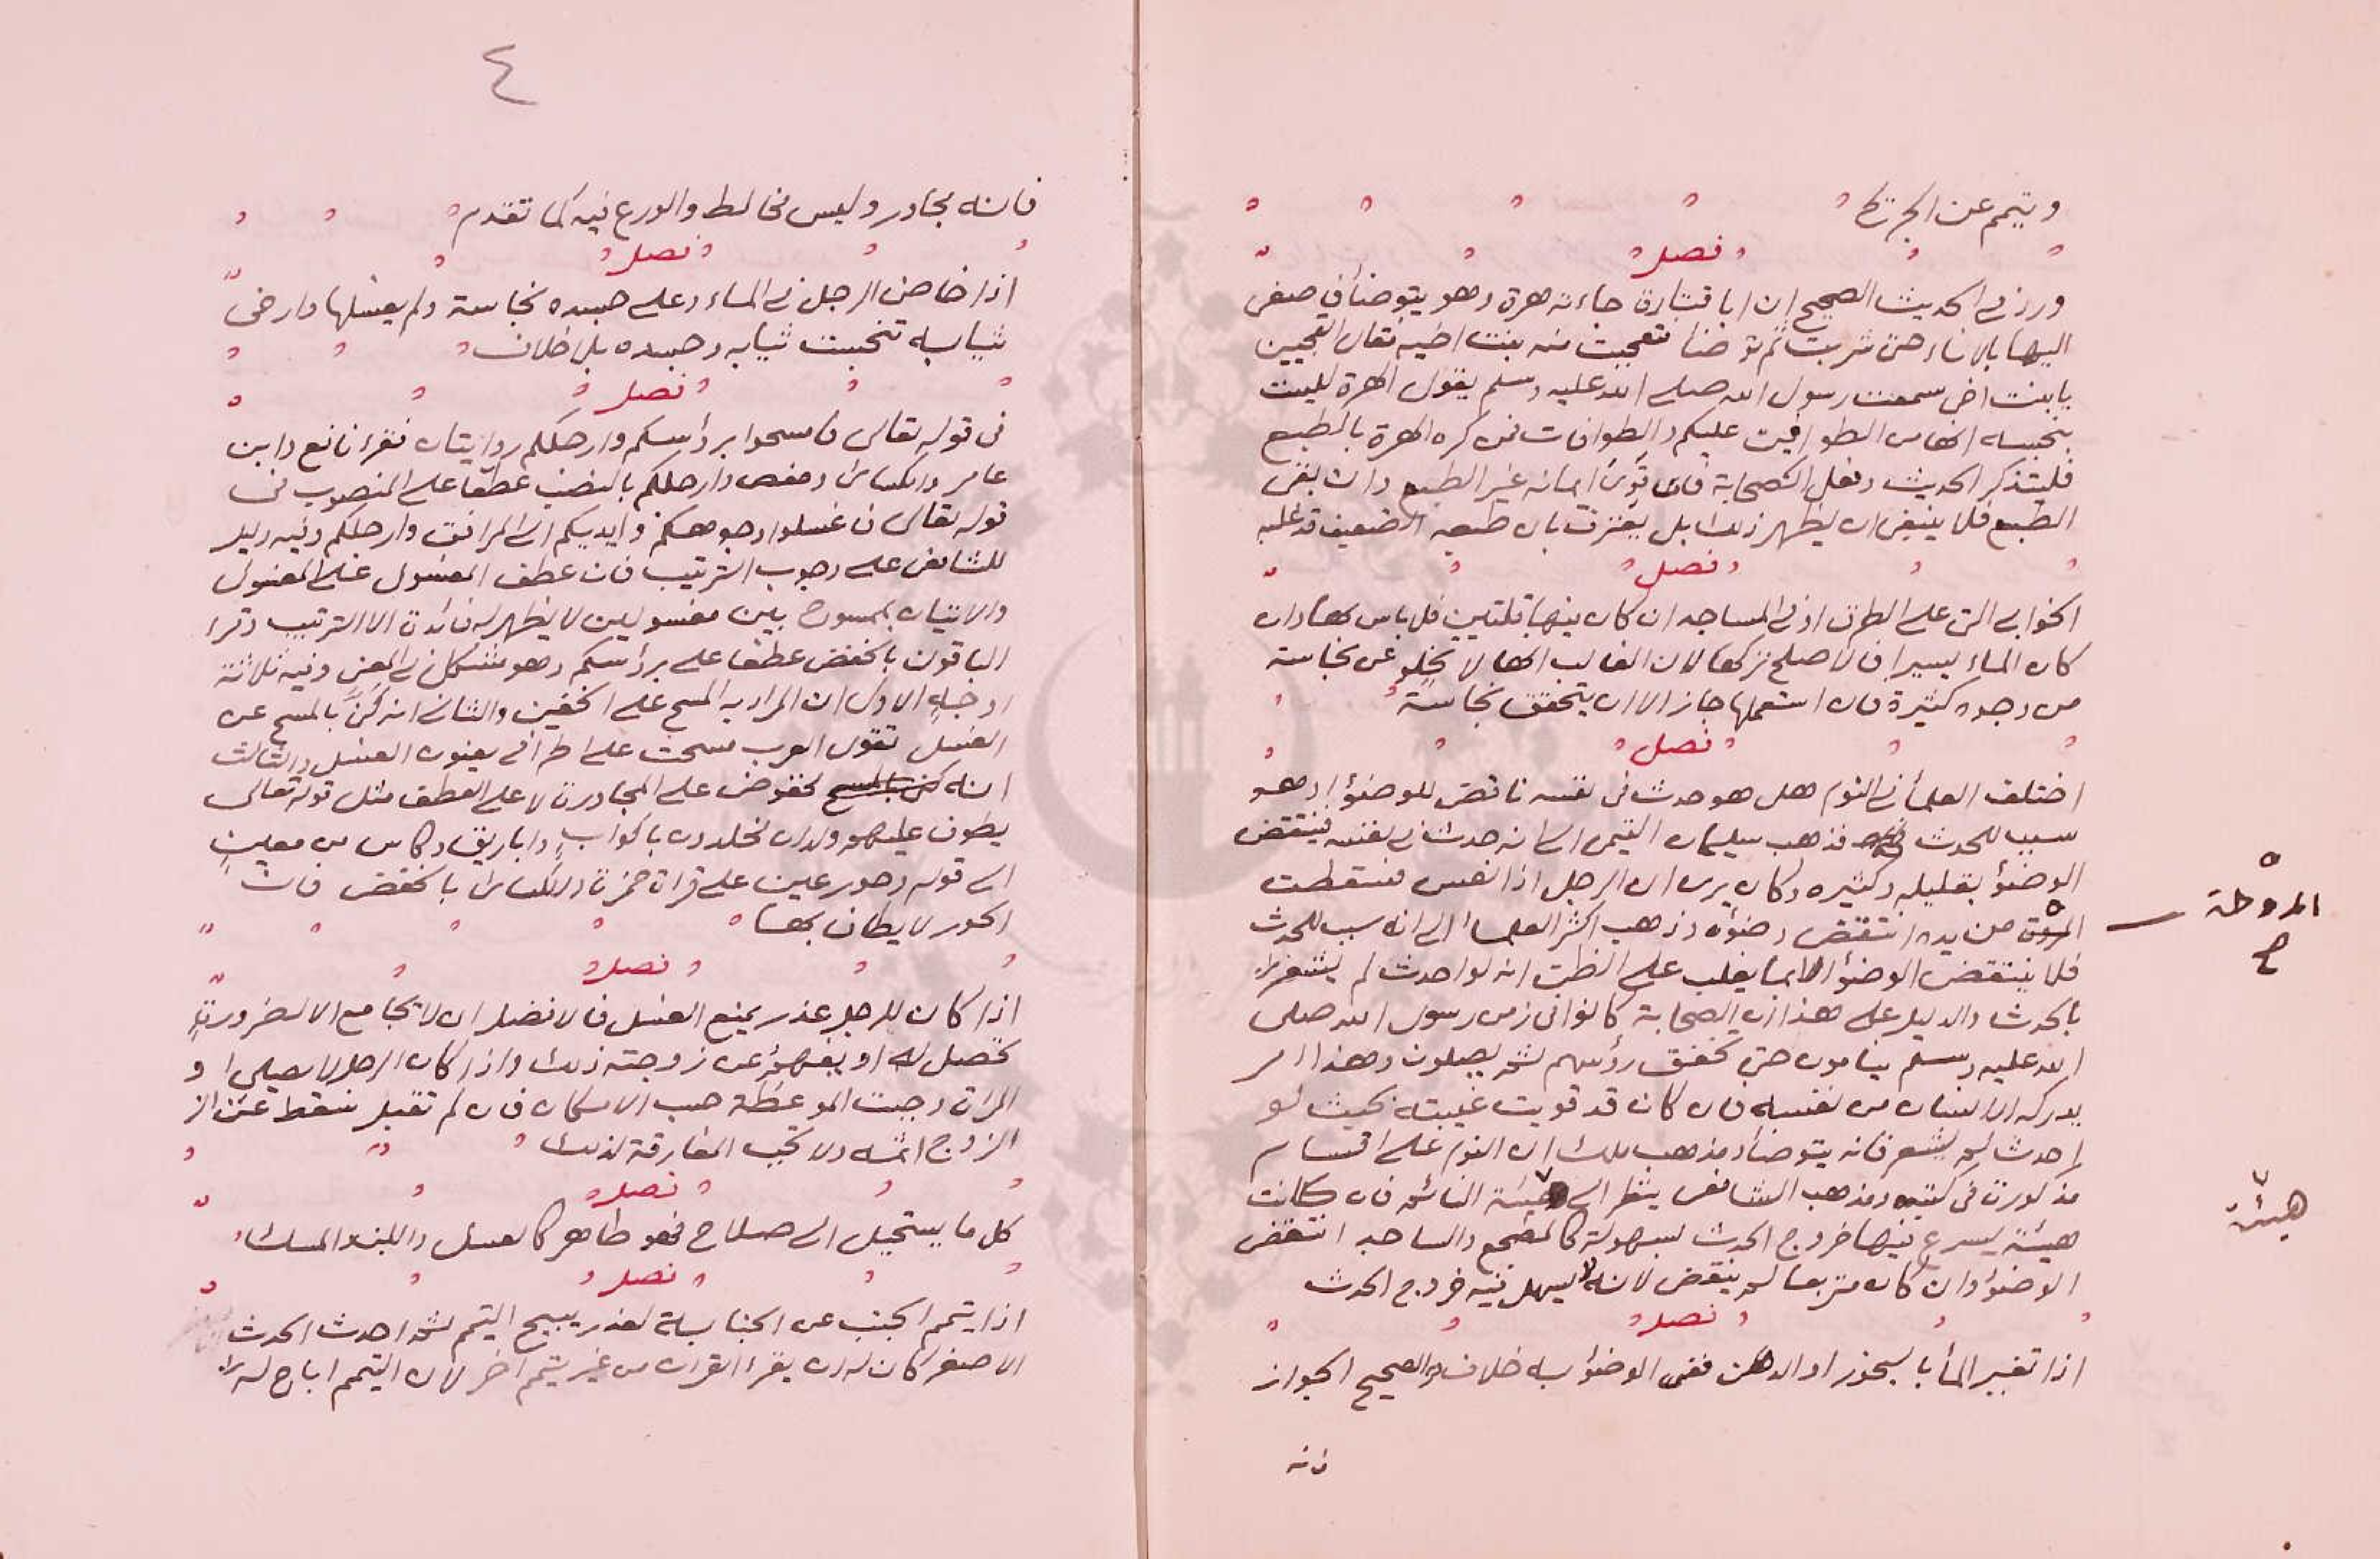 ويتيمم عن الجرح
فصل
ورد في الحديث الصحيح ان ابا قتادة جاءته هرة وهو يتوضأ في صغى
اليها بالاناء حتى شربت ثم توضأ فتعجبت منه بنت اخيه فقال اتعجبين
يا بنت اخي سمعت رسول الله صلى الله عليه وسلم يقول الهرة ليست
بنجسه انها من الطوافين عليكم والطوافات فمن كره الهرة بالطبع
فليتذكر الحديث وفعل الصحابة فان قوي ايمانه غير الطبع وان بقي
الطبع فلا ينبغي ان يظهر ذلك بل يعترف بان طبعه الضعيف قد غلبه
فصل
الخوابي التي على الطرق او في المساجد ان كان فيها قلتين فلا باس بها وان
كان الماء يسيرا فالاصلح تركها لان الغالب انها لا تخلو عن نجاسة
من وجوه كثيرة فان استعملها جاز الا ان يتحقق نجاسة
فصل
اختلف العلمأ في النوم هل هو حدث في نفسه ناقض للوضوء او هو
سبب للحدث فذهب سليمان التيمي الى انه حدث في نفسه فينتقض
الوضوء بقليله وكثيره وكان يرى ان الرجل اذا نعس فسقطت
من يده انتقض وضوءه وذهب اكثر العلماء الى انه سبب للحدث
المروحة
ح
فلا ينتقض الوضوء الا بما يغلب على الظن انه لو احدث لم يشعر
بالحدث والدليل على هذا ان الصحابة كانوا في زمن رسول الله صلى
الله عليه وسلم ينامون حتى تخفق رؤسهم ثم يصلون وهذا امر
يدركه الانسان من نفسه فان كان قد قويت غيبته بحيث لو
احدث لم يشعر فانه يتوضأ ومذهب مالك ان النوم على اقسام
مذكورة في كتبه ومذهب الشافعي ينظر الى هيئة النائم فان كانت
هيئة
هيئة يسرع فيها خروج الحدث بسهولة كالمضجع والساجد انتقض
الوضوء وان كان متربعا لم ينقض لانه لا يسهل فيه خروج الحدث
فصل
اذا تغير المأ بالبخور او الدهن ففي الوضوء به خلاف والصحيح الجواز
فانه
٤
فانه مجاور وليس مخالط والورع فيه كما تقدم
فصل
اذا خاض الرجل في الماء وعلى جسده نجاسة ولم يغسلها وارخى
ثيابه تنجست ثيابه وجسده بلا خلاف
فصل
في قوله تعالى فامسحوا برؤسكم وارجلكم روايتان فقرء نافع وابن
عامر والكسائي وحفص وارجلكم بالنصب عطفا على المنصوب في
قوله تعالى فاغسلوا وجوهكم وايديكم الى المرافق وارجلكم وفيه دليل
للشافعي على وجوب الترتيب فان عطف المغسول على المغسول
والاتيان بممسوح بين مغسولين لا يظهر له فائدة الا الترتيب وقرء
الباقون بالخفض عطفا على برؤسكم وهو مشكل في المعنى وفيه ثلاثة
اوجه الاول ان المراد به المسح على الخفين والثاني انه كنى بالمسح عن
الغسل تقول العرب مسحت على اطرافي يعنون الغسل والثالث
انه مخفوض على المجاورة لا على العطف مثل قوله تعالى
يطوف عليهم ولدان مخلدون باكواب واباريق وكاس من معين
الى قوله وحور عين على قراة حمزة والكسائي بالخفض فان
الحور لا يطاف بها
فصل
اذا كان للرجل عذر يمنع الغسل فالافضل ان لا يجامع الا لضرورة
تحصل له او يفهم عن زوجته ذلك واذا كان الرجل لا يصلي او
المراة وجبت الموعظة حسب الامكان فان لم تقبل سقط عن
الزوج اثمه ولا تجب المفارقة لذلك
فصل
كل ما يستحيل الى صلاح فهو طاهر كالعسل واللبن والمسك
فصل
اذا يتمم الجنب عن الجنابة لعذر يبيح التيمم ثم احدث الحدث
الاصغر كان له ان يقرء القران من غير يتمم اخر لان التيمم اباح له